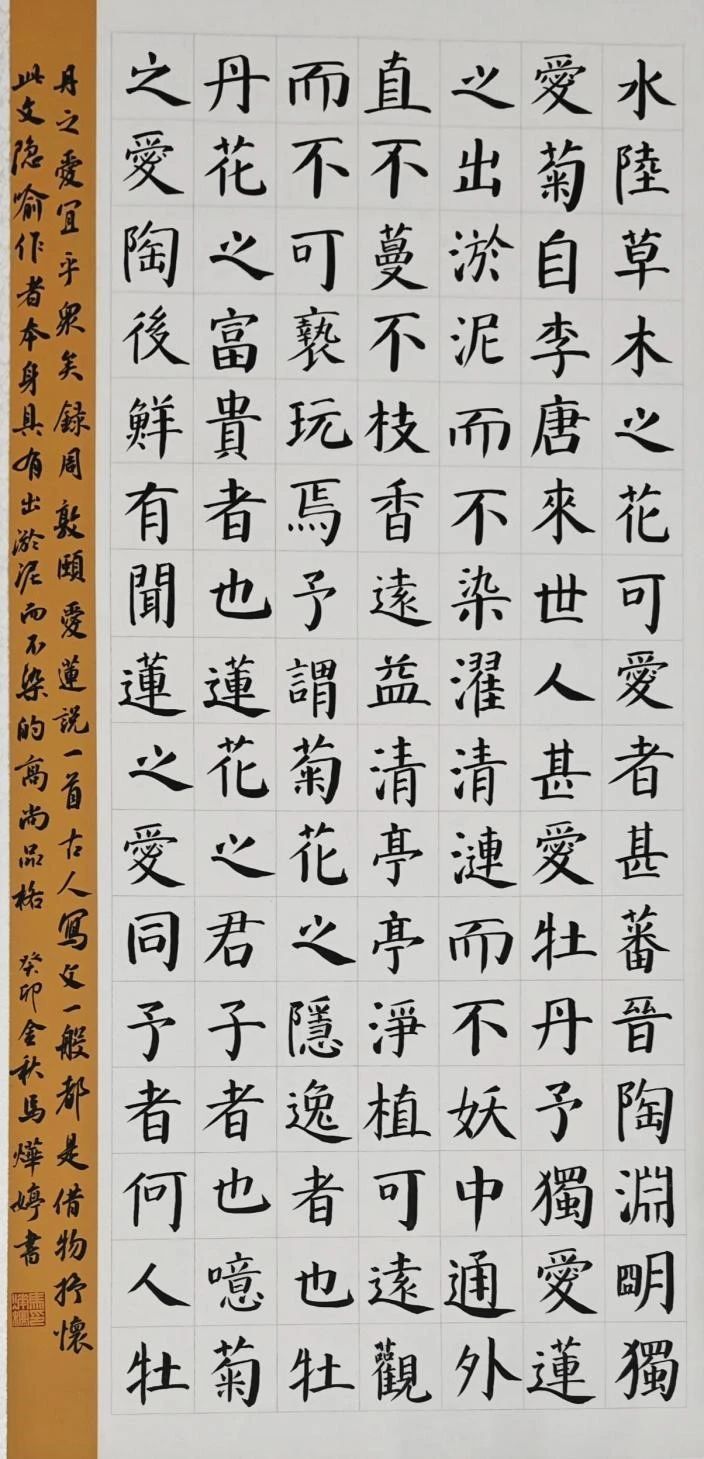 水陸草木之花可愛者甚蕃晉陶淵明獨
愛菊自李唐來世人甚愛牡丹予獨愛蓮
之出淤泥而不染濯清漣而不妖中通外
直不蔓不枝香遠益清亭亭淨植可遠觀
而不可褻玩焉予謂菊花之隱逸者也牡
丹花之富貴者也蓮花之君子者也噫菊
之愛陶後鮮有聞蓮之愛同予者何人牡
丹之愛宜乎眾矣録周敦頤愛蓮説一首古人寫文一般都是借物抒懷
此文隐喻作者本身具有出淤泥而不染的高尚品格 癸卯金秋馬燁婷書